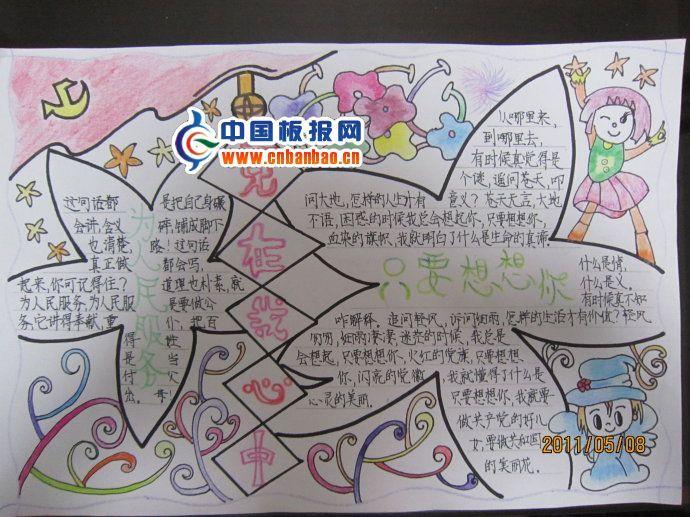 中国板报网
www.cnbanbao.cn
党
在
我
心
中
为人民服务
这句语都
会讲,含义
也清楚,
真正做
起来,你可记得住?
为人民服务,为人民服
务,它讲得奉献,重
得
是
付
出。
是把自己身碾
碎,铺成脚下
路!这句话
都会写,
道理也朴素,就
是要做公
仆,把百
性
当
父
母!
只要想想你
从哪里来,
到哪里去,
有时候真觉得是
个谜,追问苍天,叩
问大地,怎样的人生才有意义?苍天无言,大地
不语,困惑的时候我总会想起你,只要想想你,
血染的旗帜,我就明白了什么是生命的真谛
什么是得,
什么是义。
有时候真不知
咋解释。追问轻风,诉问细雨,怎样的生活才有价值?轻风
呦呦,细雨濛濛,迷茫的时候,我总是
会想起,只要想想你,火红的党旗,只要想想
你,闪亮的党徽,我就懂得了什么是
心灵的美丽。只要想想你,我就要
做共产党的好儿
女,要做共和国
的美丽花。
2011/05/08